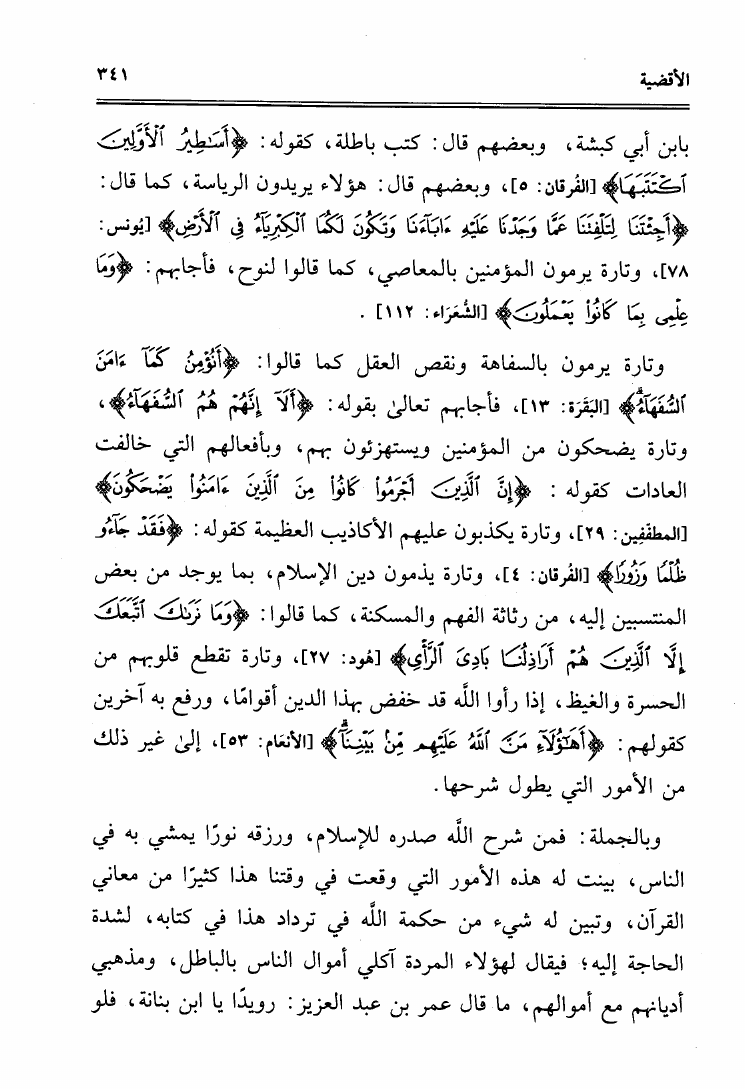 الأقضية ٣٤١
بابن أبي كبشة، وبعضهم قال: كتب باطلة، كقوله: ﴿أَسَٰطِيرُ ٱلْأَوَّلِينَ
ٱكْتَتَبَهَا﴾ [الفُرقان: ٥]، وبعضهم قال: هؤلاء يريدون الرياسة، كما قال:
﴿أَجِئْتَنَا لِتَلْفِتَنَا عَمَّا وَجَدْنَا عَلَيْهِ ءَابَآءَنَا وَتَكُونَ لَكُمَا ٱلْكِبْرِيَآءُ فِى ٱلْأَرْضِ﴾ [يُونس:
٧٨]، وتارة يرمون المؤمنين بالمعاصي، كما قالوا لنوح، فأجابهم: ﴿وَمَا
عِلْمِى بِمَا كَانُوا۟ يَعْمَلُونَ﴾ [الشُّعَرَاء: ١١٢] .
وتارة يرمون بالسفاهة ونقص العقل كما قالوا: ﴿أَنُؤْمِنُ كَمَآ ءَامَنَ
ٱلسُّفَهَآءُ﴾ [البَقَرَة: ١٣]، فأجابهم تعالىٰ بقوله: ﴿أَلَآ إِنَّهُمْ هُمُ ٱلسُّفَهَآءُ﴾،
وتارة يضحكون من المؤمنين ويستهزئون بهم، وبأفعالهم التي خالفت
العادات كقوله : ﴿إِنَّ ٱلَّذِينَ أَجْرَمُوا۟ كَانُوا۟ مِنَ ٱلَّذِينَ ءَامَنُوا۟ يَضْحَكُونَ﴾
[المطفّفِين: ٢٩]، وتارة يكذبون عليهم الأكاذيب العظيمة كقوله: ﴿فَقَدْ جَآءُو
ظُلْمًا وَزُورًا﴾ [الفُرقان: ٤]، وتارة يذمون دين الإسلام، بما يوجد من بعض
المنتسبين إليه، من رثاثة الفهم والمسكنة، كما قالوا: ﴿وَمَا نَرَىٰكَ ٱتَّبَعَكَ
إِلَّا ٱلَّذِينَ هُمْ أَرَاذِلُنَا بَادِىَ ٱلرَّأْىِ﴾ [هُود: ٢٧]، وتارة تقطع قلوبهم من
الحسرة والغيظ، إذا رأوا اللَّه قد خفض بهذا الدين أقوامًا، ورفع به آخرين
كقولهم: ﴿أَهَٰٓؤُلَآءِ مَنَّ ٱللَّهُ عَلَيْهِم مِّنۢ بَيْنِنَآ﴾ [الأنعَام: ٥٣]، إلىٰ غير ذلك
من الأمور التي يطول شرحها.
وبالجملة: فمن شرح اللَّه صدره للإسلام، ورزقه نورًا يمشي به في
الناس، بينت له هذه الأمور التي وقعت في وقتنا هذا كثيرًا من معاني
القرآن، وتبين له شيء من حكمة اللَّه في ترداد هذا في كتابه، لشدة
الحاجة إليه؛ فيقال لهؤلاء المردة آكلي أموال الناس بالباطل، ومذهبي
أديانهم مع أموالهم، ما قال عمر بن عبد العزيز: رويدًا يا ابن بنانة، فلو